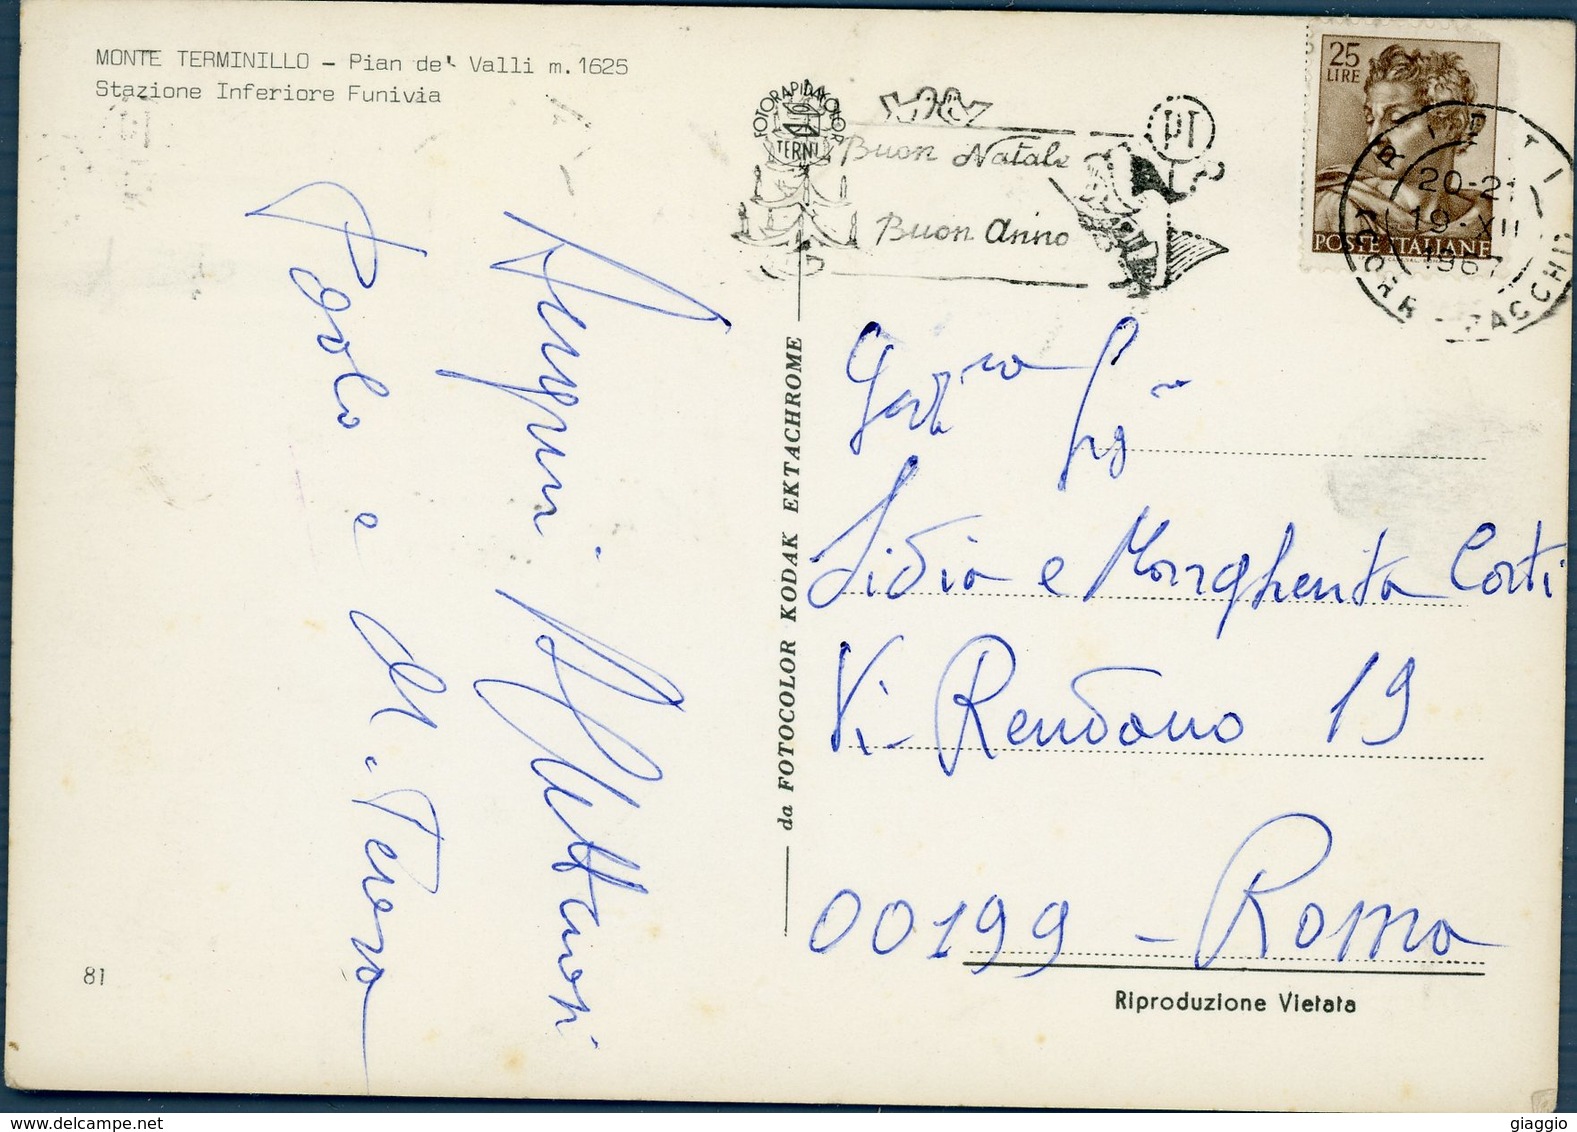 MONTE TERMINILLO - Pian de' Valli m.1625
Stazione Inferiore Funivia
FOTORAPIDACOLOR
TERNI
Buon Natale
Buon Anno
PT
25
LIRE
POSTE ITALIANE
RIETI
20-21
19-XII
1967
CORR-PACCHI
Auguri Affettuosi
Paolo e M. Teresa
da FOTOCOLOR KODAK EKTACHROME
Gent.me Sig.ne
Lidia e Margherita Corti
Vi- Rendano 19
00199 - Roma
Riproduzione Vietata
81
giaggio